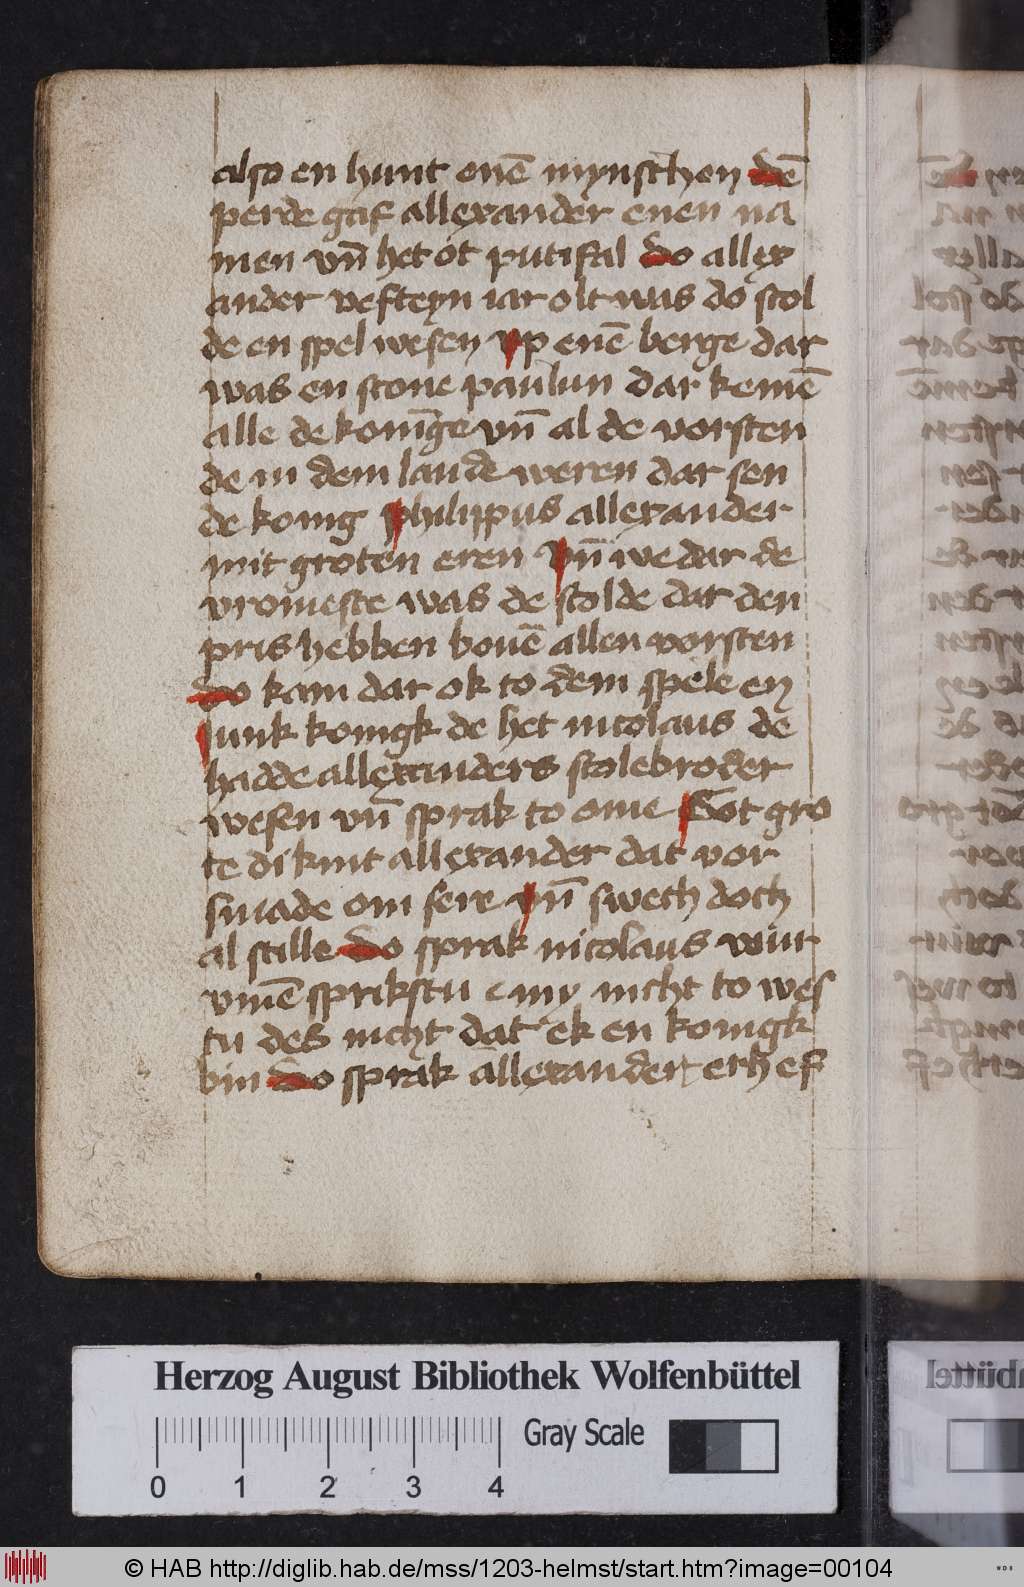 also en hunt enē mynschen dē
perde gaf allexander enen na
men vn̄ het ōt putifal do allex
ander vefteyn iar olt was do stol
de en spel wesen vp enē berge dar
was en scone paulun dar kemē
alle de koni̅ge vn̄ al de vorsten
de in dem lande weren dar sen
de konig philippus allexander
mit groten eren vn̄ we dar de
vromeste was de scolde dar den
pris hebben bouē allen vorsten
do kam dar ok to dem spele en
iunk konigk de het nicolaus de
hadde allexanders scolebroder
wesen vn̄ sprak to ome Got gro
te di kint allexander dat vor
smade om sere vn̄ swech doch
al stille do sprak nicolaus wur
vmē sprikstu e my nicht to wes
tu des nicht dat ek en konigk
bin do sprak allexander eth ef
Herzog August Bibliothek Wolfenbüttel
Gray Scale
0 1 2 3 4
© HAB http://diglib.hab.de/mss/1203-helmst/start.htm?image=00104